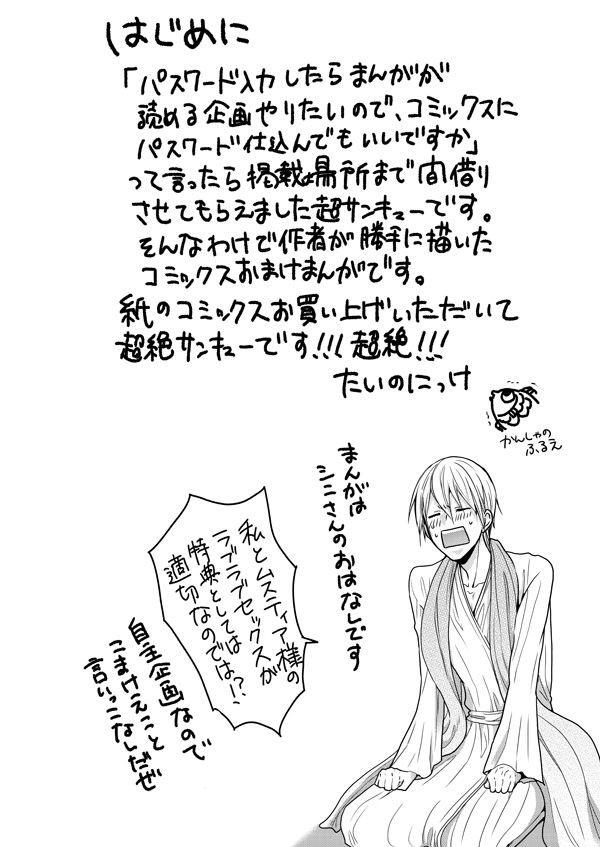 はじめに
「パスワード入力したらまんがが
読める企画やりたいので、コミックスに
パスワード仕込んでもいいですか」
って言ったら掲載場所まで間借り
させてもらえました超サンキューです。
そんなわけで作者が勝手に描いた
コミックスおまけまんがです。
紙のコミックスお買い上げいただいて
超絶サンキューです!!!超絶!!!
たいのにっけ
かんしゃの
ふるえ
まんがは
シニさんのおはなしです
私とムスティア様の
ラブラブセックスが
特典としては
適切なのでは!?
自主企画なので
こまけえこと
言いっこなしだぜ